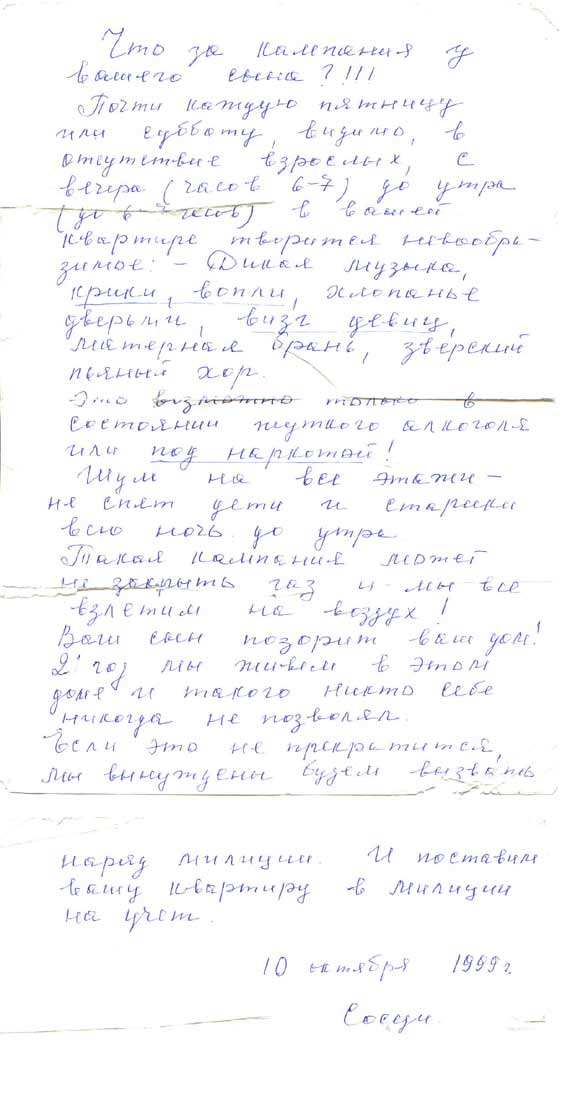 Что за кампания у
вашего сына?!!!
Почти каждую пятницу
или субботу, видимо, в
отсутствие взрослых, с
вечера (часов 6-7) до утра
(до 6-7 часов) в вашей
квартире творится невообра-
зимое: - Дикая музыка,
крики, вопли, хлопанье
дверьми, визг девиц,
матерная брань, зверский
пьяный хор.
Это возможно только в
состоянии жуткого алкоголя
или под наркотой!
Шум на все этажи -
не спят дети и старики
всю ночь до утра.
Такая кампания может
не закрыть газ и мы все
взлетим на воздух!
Ваш сын позорит ваш дом!
21 год мы живем в этом
доме и такого никто себе
никогда не позволял.
Если это не прекратится,
мы вынуждены будем вызвать
наряд милиции. И поставим
вашу квартиру в милиции
на учет.
10 октября 1999 г.
Соседи.